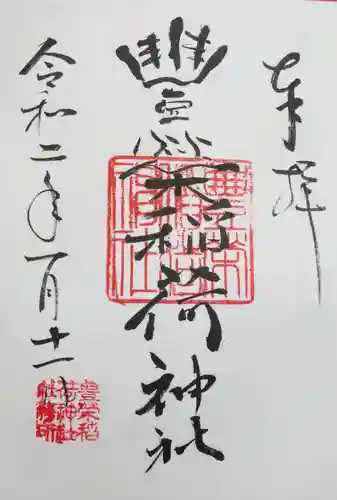 奉拝
豊栄稲荷神社
令和二年一月十一日
豊榮稲
荷神社
社務所